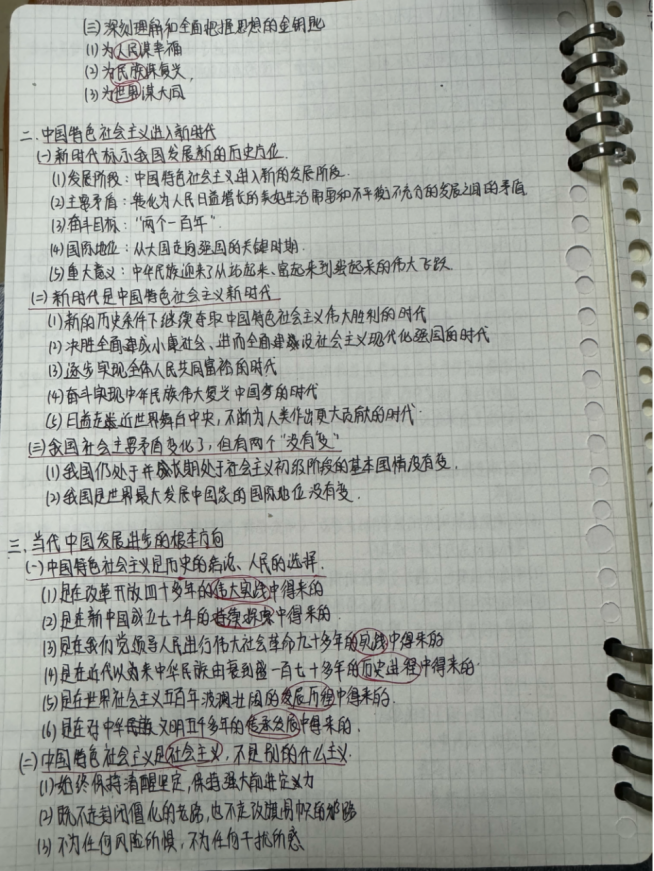 (三)深刻理解和全面把握思想的金钥匙
(1)为人民谋幸福
(2)为民族谋复兴,
(3)为世界谋大同
二、中国特色社会主义进入新时代
(一)新时代标示我国发展新的历史方位.
(1)发展阶段:中国特色社会主义进入新的发展阶段.
(2)主要矛盾:转化为人民日益增长的美好生活需要和不平衡不充分的发展之间的矛盾
(3)奋斗目标:“两个一百年”.
(4)国际地位:从大国走向强国的关键时期.
(5)重大意义:中华民族迎来了从站起来、富起来到强起来的伟大飞跃.
(二)新时代是中国特色社会主义新时代
(1)新的历史条件下继续夺取中国特色社会主义伟大胜利的时代
(2)决胜全面建成小康社会、进而全面建设社会主义现代化强国的时代
(3)逐步实现全体人民共同富裕的时代
(4)奋斗实现中华民族伟大复兴中国梦的时代
(5)日益走近世界舞台中央,不断为人类作出更大贡献的时代.
(三)我国社会主要矛盾变化了,但有两个“没有变”
(1)我国仍处于并长期处于社会主义初级阶段的基本国情没有变.
(2)我国是世界最大发展中国家的国际地位没有变.
三、当代中国发展进步的根本方向
(一)中国特色社会主义是历史的结论、人民的选择.
(1)是在改革开放四十多年的伟大实践中得来的
(2)是在新中国成立七十年的持续探索中得来的.
(3)是在我们党领导人民进行伟大社会革命九十多年的实践中得来的
(4)是在近代以来中华民族由衰到盛一百七十多年的历史进程中得来的.
(5)是在世界社会主义五百年波澜壮阔的发展历程中得来的.
(6)是在对中华文明五千多年的传承发展中得来的.
(二)中国特色社会主义是社会主义,不是别的什么主义.
(1)始终保持清醒坚定,保持强大前进定力
(2)既不走封闭僵化的老路,也不走改旗易帜的邪路
(3)不为任何风险所惧,不为任何干扰所惑